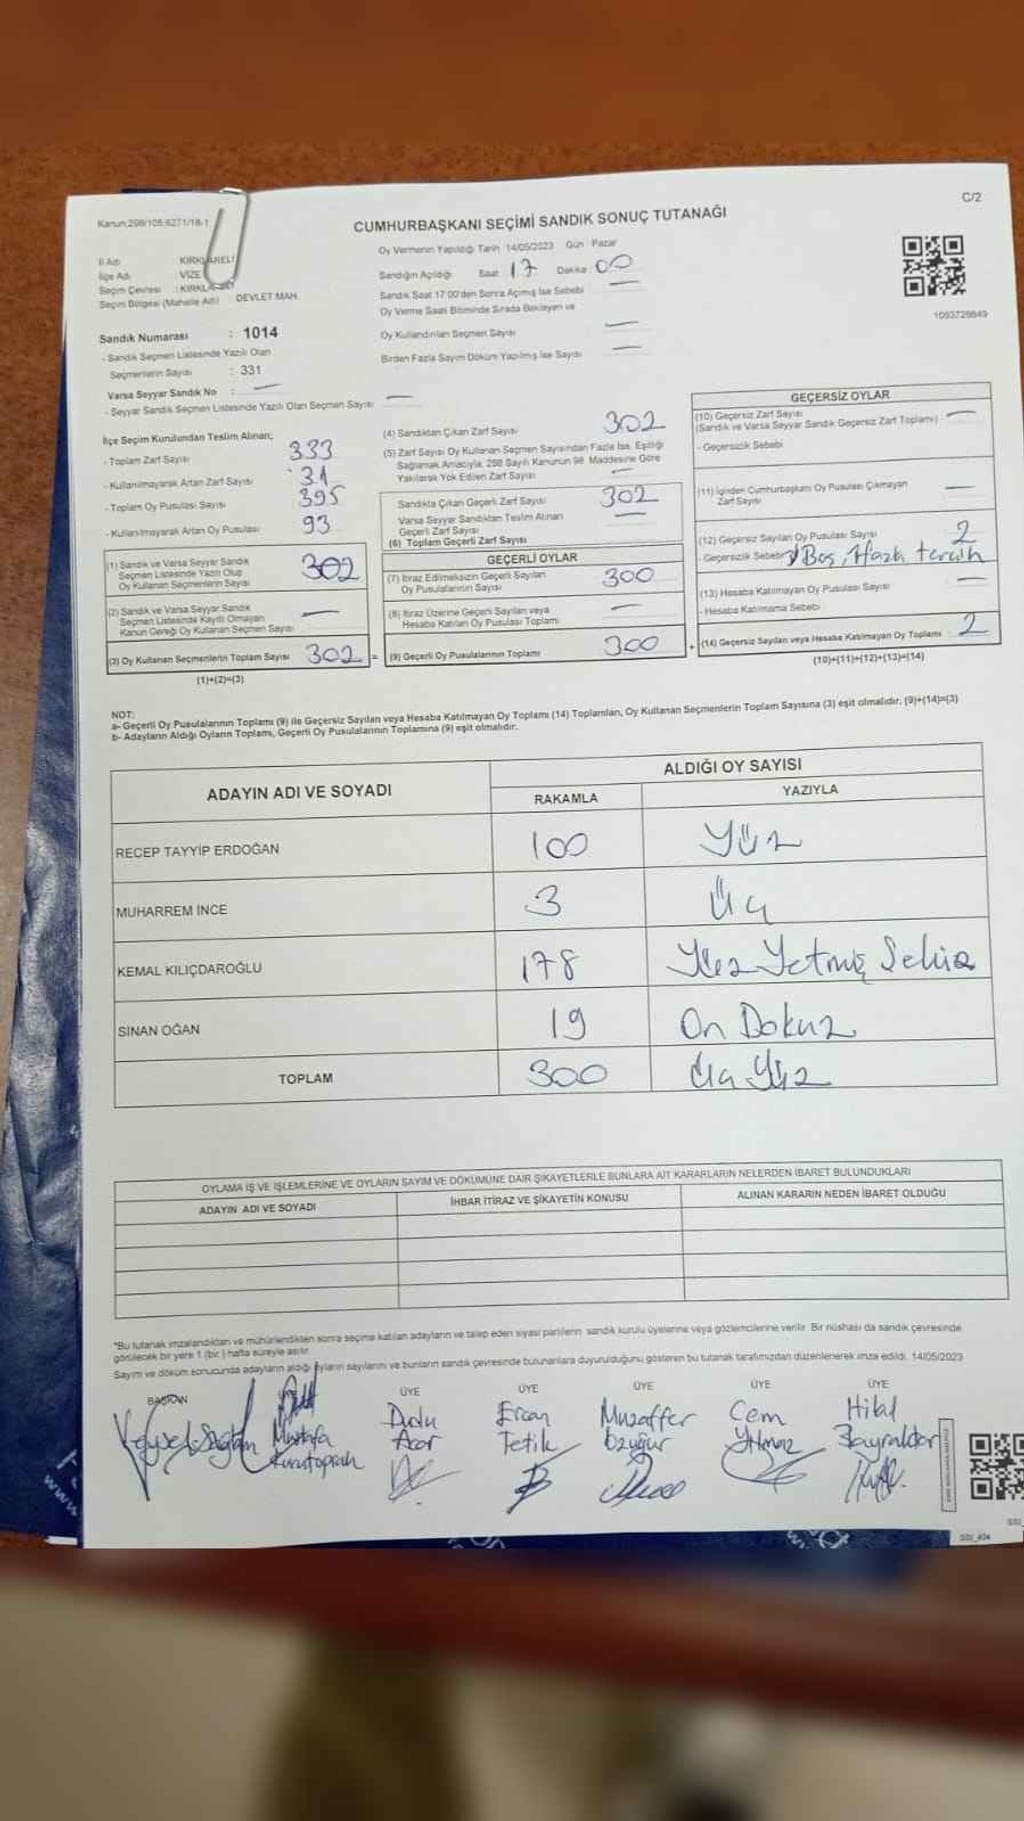 Kanun:298/105-6271/18-1
C/2
CUMHURBAŞKANI SEÇİMİ SANDIK SONUÇ TUTANAĞI
İl Adı KIRKLARELİ
İlçe Adı VİZE
Seçim Çevresi : KIRKLARELİ
Seçim Bölgesi (Mahalle Adı) : DEVLET MAH
Sandık Numarası : 1014
- Sandık Seçmen Listesinde Yazılı Olan
Seçmenlerin Sayısı : 331
Varsa Seyyar Sandık No : —
- Seyyar Sandık Seçmen Listesinde Yazılı Olan Seçmen Sayısı —
Oy Vermenin Yapıldığı Tarih 14/05/2023 Gün : Pazar
Sandığın Açıldığı Saat 17 Dakika 00
Sandık Saat 17:00'den Sonra Açılmış İse Sebebi —
Oy Verme Saati Bitiminde Sırada Bekleyen ve
Oy Kullandırılan Seçmen Sayısı —
Birden Fazla Sayım Döküm Yapılmış İse Sayısı —
1093728849
İlçe Seçim Kurulundan Teslim Alınan;
- Toplam Zarf Sayısı 333
- Kullanılmayarak Artan Zarf Sayısı 31
- Toplam Oy Pusulası Sayısı 395
- Kullanılmayarak Artan Oy Pusulası 93
(1) Sandık ve Varsa Seyyar Sandık
Seçmen Listesinde Yazılı Olup
Oy Kullanan Seçmenlerin Sayısı 302
(2) Sandık ve Varsa Seyyar Sandık
Seçmen Listesinde Kayıtlı Olmayan
Kanun Gereği Oy Kullanan Seçmen Sayısı —
(3) Oy Kullanan Seçmenlerin Toplam Sayısı 302 =
(1)+(2)=(3)
(4) Sandıktan Çıkan Zarf Sayısı 302
(5) Zarf Sayısı Oy Kullanan Seçmen Sayısından Fazla İse, Eşitliği
Sağlamak Amacıyla, 298 Sayılı Kanunun 98. Maddesine Göre
Yakılarak Yok Edilen Zarf Sayısı —
Sandıkta Çıkan Geçerli Zarf Sayısı 302
Varsa Seyyar Sandıktan Teslim Alınan
Geçerli Zarf Sayısı —
(6) Toplam Geçerli Zarf Sayısı
GEÇERLİ OYLAR
(7) İtiraz Edilmeksizin Geçerli Sayılan
Oy Pusulalarının Sayısı 300
(8) İtiraz Üzerine Geçerli Sayılan veya
Hesaba Katılan Oy Pusulası Toplamı —
(9) Geçerli Oy Pusulalarının Toplamı 300 +
GEÇERSİZ OYLAR
(10) Geçersiz Zarf Sayısı
(Sandık ve Varsa Seyyar Sandık Geçersiz Zarf Toplamı) —
- Geçersizlik Sebebi
(11) İçinden Cumhurbaşkanı Oy Pusulası Çıkmayan
Zarf Sayısı —
(12) Geçersiz Sayılan Oy Pusulası Sayısı 2
- Geçersizlik Sebebi 1 Boş, 1 fazla tercih
(13) Hesaba Katılmayan Oy Pusulası Sayısı —
- Hesaba Katılmama Sebebi
(14) Geçersiz Sayılan veya Hesaba Katılmayan Oy Toplamı 2
(10)+(11)+(12)+(13)=(14)
NOT:
a- Geçerli Oy Pusulalarının Toplamı (9) ile Geçersiz Sayılan veya Hesaba Katılmayan Oy Toplamı (14) Toplamları, Oy Kullanan Seçmenlerin Toplam Sayısına (3) eşit olmalıdır. (9)+(14)=(3)
b- Adayların Aldığı Oyların Toplamı, Geçerli Oy Pusulalarının Toplamına (9) eşit olmalıdır.
ADAYIN ADI VE SOYADI
ALDIĞI OY SAYISI
RAKAMLA YAZIYLA
RECEP TAYYİP ERDOĞAN 100 Yüz
MUHARREM İNCE 3 Üç
KEMAL KILIÇDAROĞLU 178 Yüz Yetmiş Sekiz
SİNAN OĞAN 19 On Dokuz
TOPLAM 300 Üç Yüz
OYLAMA İŞ VE İŞLEMLERİNE VE OYLARIN SAYIM VE DÖKÜMÜNE DAİR ŞİKAYETLERLE BUNLARA AİT KARARLARIN NELERDEN İBARET BULUNDUKLARI
ADAYIN ADI VE SOYADI İHBAR İTİRAZ VE ŞİKAYETİN KONUSU ALINAN KARARIN NEDEN İBARET OLDUĞU
*Bu tutanak imzalandıktan ve mühürlendikten sonra seçime katılan adayların ve talep eden siyasi partilerin sandık kurulu üyelerine veya gözlemcilerine verilir. Bir nüshası da sandık çevresinde
görülecek bir yere 1 (bir ) hafta süreyle asılır.
Sayım ve döküm sonucunda adayların aldığı oyların sayılarını ve bunların sandık çevresinde bulunanlara duyurulduğunu gösteren bu tutanak tarafımızdan düzenlenerek imza edildi. 14/05/2023
BAŞKAN ÜYE ÜYE ÜYE ÜYE ÜYE
Veysel Sağlam
Mustafa
Kurutoprak
Dudu
Acar
Ercan
Tetik
Muzaffer
Özuğur
Cem
Yılmaz
Hilal
Bayraktar